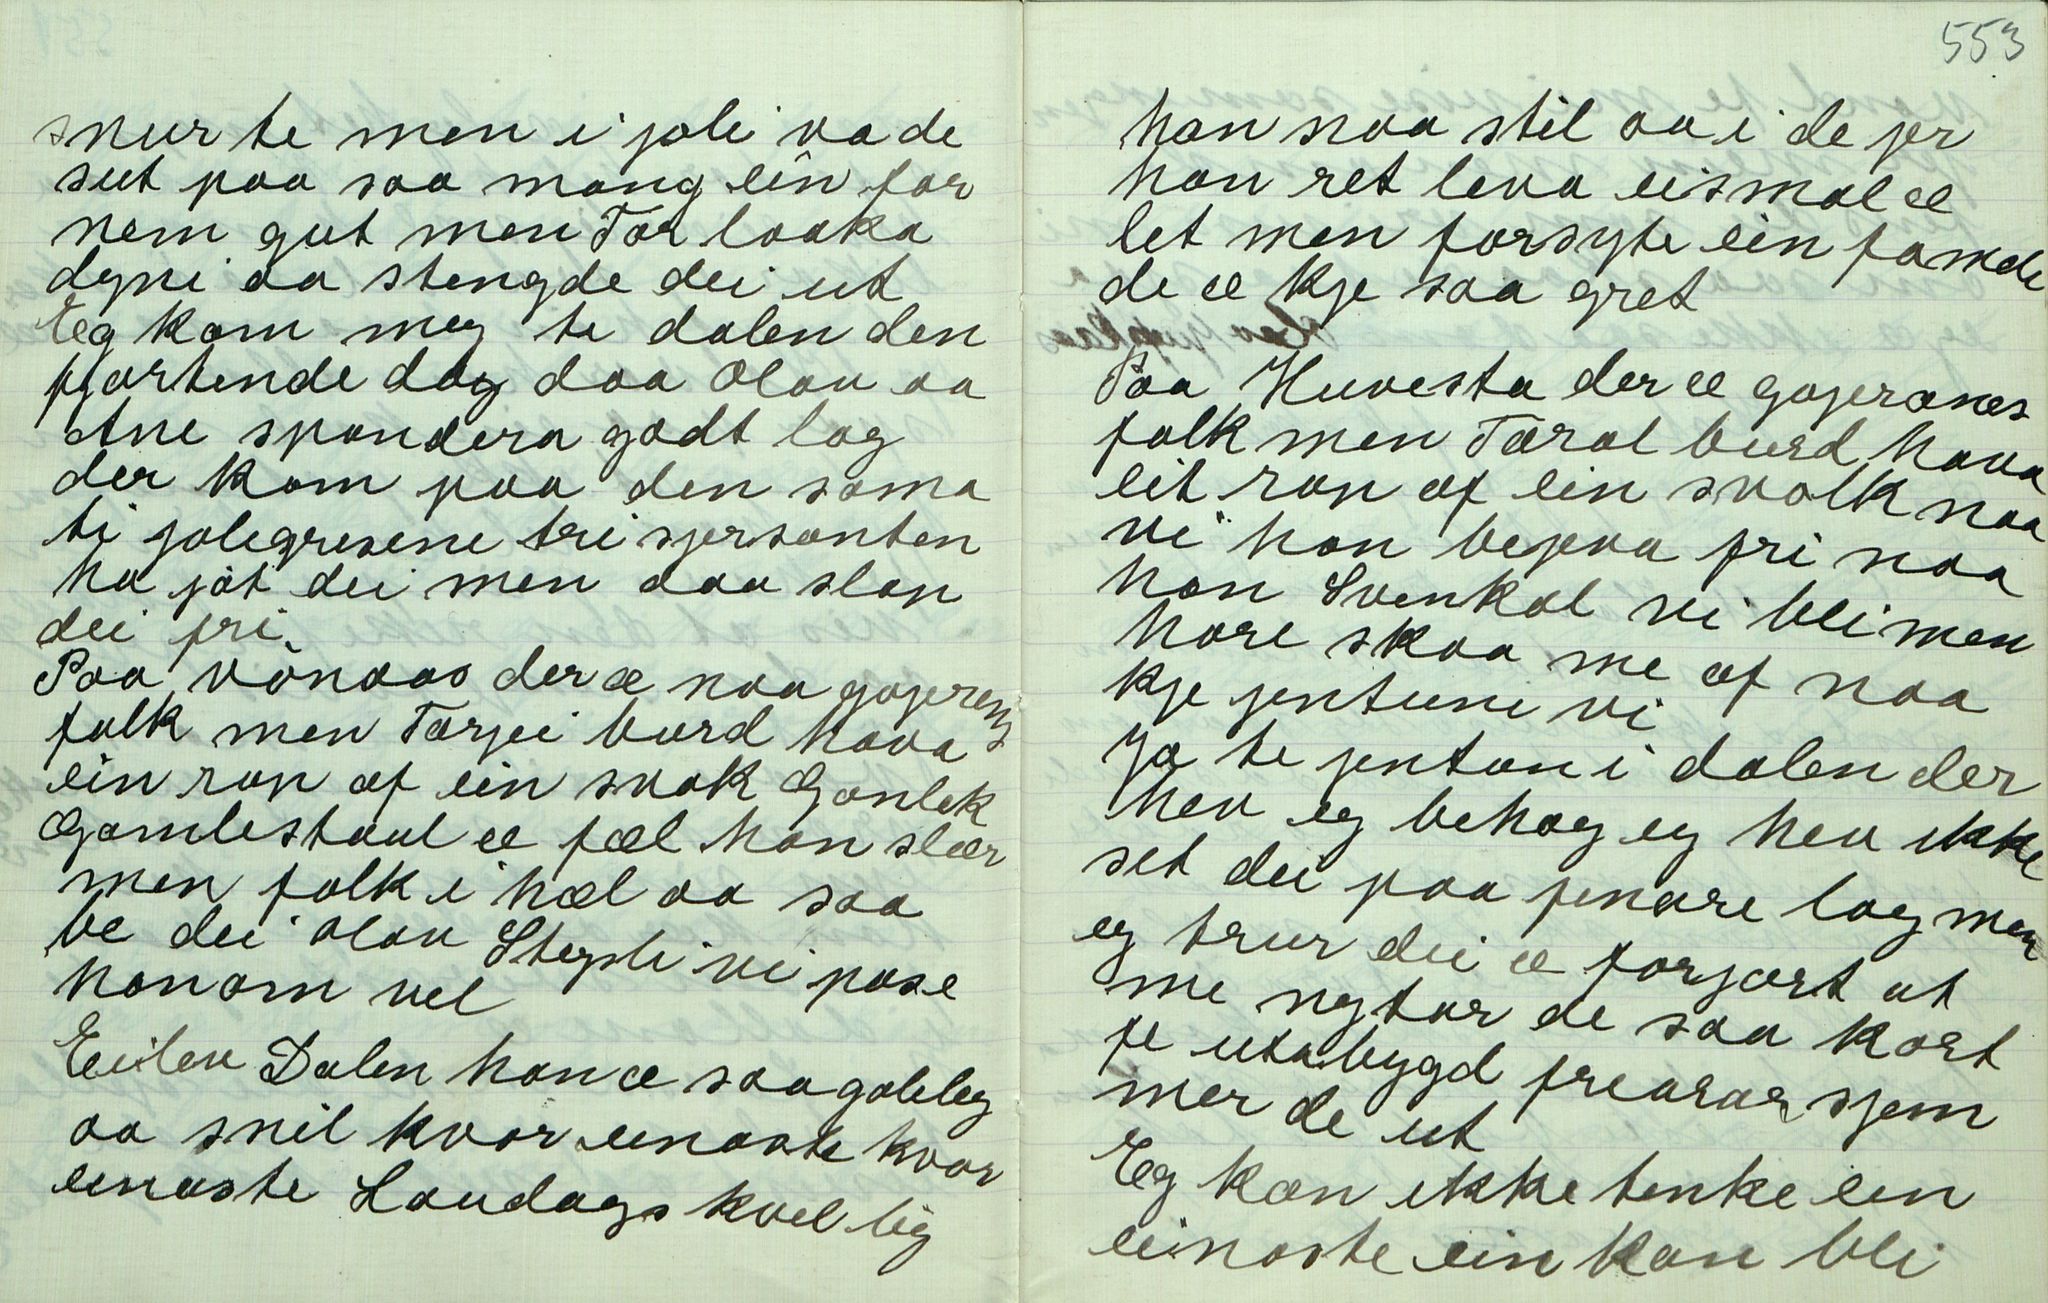 snurte men i joli va de
sut paa saa mang ein for
nem gut men Tor laaka
dyni aa stengde dei ut
Eg kom meg te dalen den
fjortende dag daa Olav aa
Ane spandera godt lag
der kom paa den sama
ti jolegrisene tri sjersanten
ha jåt dei men daa slap
dei fri.
Paa Vönaas der æ naa gogerens
folk men Tarjei burd hava
ein rap af ein svak Gonlek
Gamlestaul æ fæl han slær
men folk i hæl aa saa
be dei Olav Stegsli vi pase
honom vel
Eilev Dalen han æ saa goleleg
aa snil kvar einaste kvar
einaste Laudags kvel lig
553
han naa stil aa i de jer
han ret leva eismal æ
let men forsyte ein famde
de æ kje saa gret
Paa Huvesta der æ gogerænes
folk men Tarol burd hava
eit rap af ein svolk naa
vi han bejeva fri naa
han Svenkal vi bli men
hore skaa me af naa
kje jentune vi
Ja te jentan i dalen der
hev eg behag eg hev ikke
set dei paa penare lag men
eg trur dei æ forgort at
me nytar de saa kort
fe utabygd friarar sjem
mer de ut
Eg kan ikke tenke ein
einaste ein kan bli